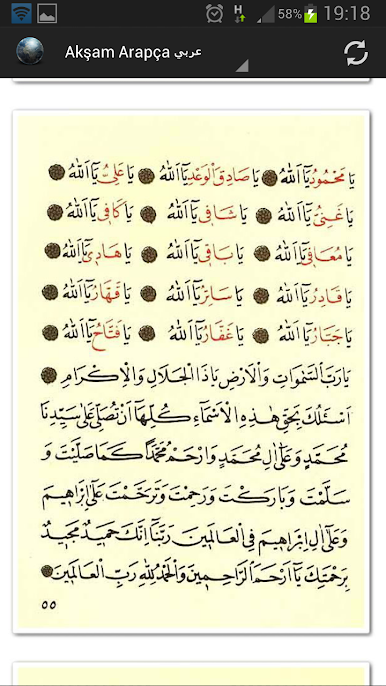 19:18
58%
H
Akşam Arapça عربي
يَا مَحْمُودُ يَآ اَللهُ يَا صَادِقَ الْوَعْدِ يَآ اَللهُ يَا عَلِيُّ يَآ اَللهُ
يَا غَنِيُّ يَآ اَللهُ يَا شَافِي يَآ اَللهُ يَا كَافِي يَآ اَللهُ
يَا مُعَافِي يَآ اَللهُ يَا بَاقِي يَآ اَللهُ يَا هَادِي يَآ اَللهُ
يَا قَادِرُ يَآ اَللهُ يَا سَاتِرُ يَآ اَللهُ يَا قَهَّارُ يَآ اَللهُ
يَا جَبَّارُ يَآ اَللهُ يَا غَفَّارُ يَآ اَللهُ يَا فَتَّاحُ يَآ اَللهُ
يَا رَبَّ السَّمٰوَاتِ وَالْاَرْضِ يَا ذَا الْجَلَالِ وَالْاِكْرَامِ
اَسْئَلُكَ بِحَقِّ هٰذِهِ الْاَسْمَآءِ كُلِّهَا اَنْ تُصَلِّيَ عَلٰى سَيِّدِنَا
مُحَمَّدٍ وَعَلٰٓى اٰلِ مُحَمَّدٍ وَارْحَمْ مُحَمَّدًا كَمَا صَلَّيْتَ وَ
سَلَّمْتَ وَبَارَكْتَ وَرَحِمْتَ وَتَرَحَّمْتَ عَلٰٓى اِبْرَاهِيمَ
وَعَلٰٓى اٰلِ اِبْرَاهِيمَ فِي الْعَالَمِينَ رَبَّنَآ اِنَّكَ حَمِيدٌ مَجِيدٌ
بِرَحْمَتِكَ يَآ اَرْحَمَ الرَّاحِمِينَ وَالْحَمْدُ لِلّٰهِ رَبِّ الْعَالَمِينَ
٥٥